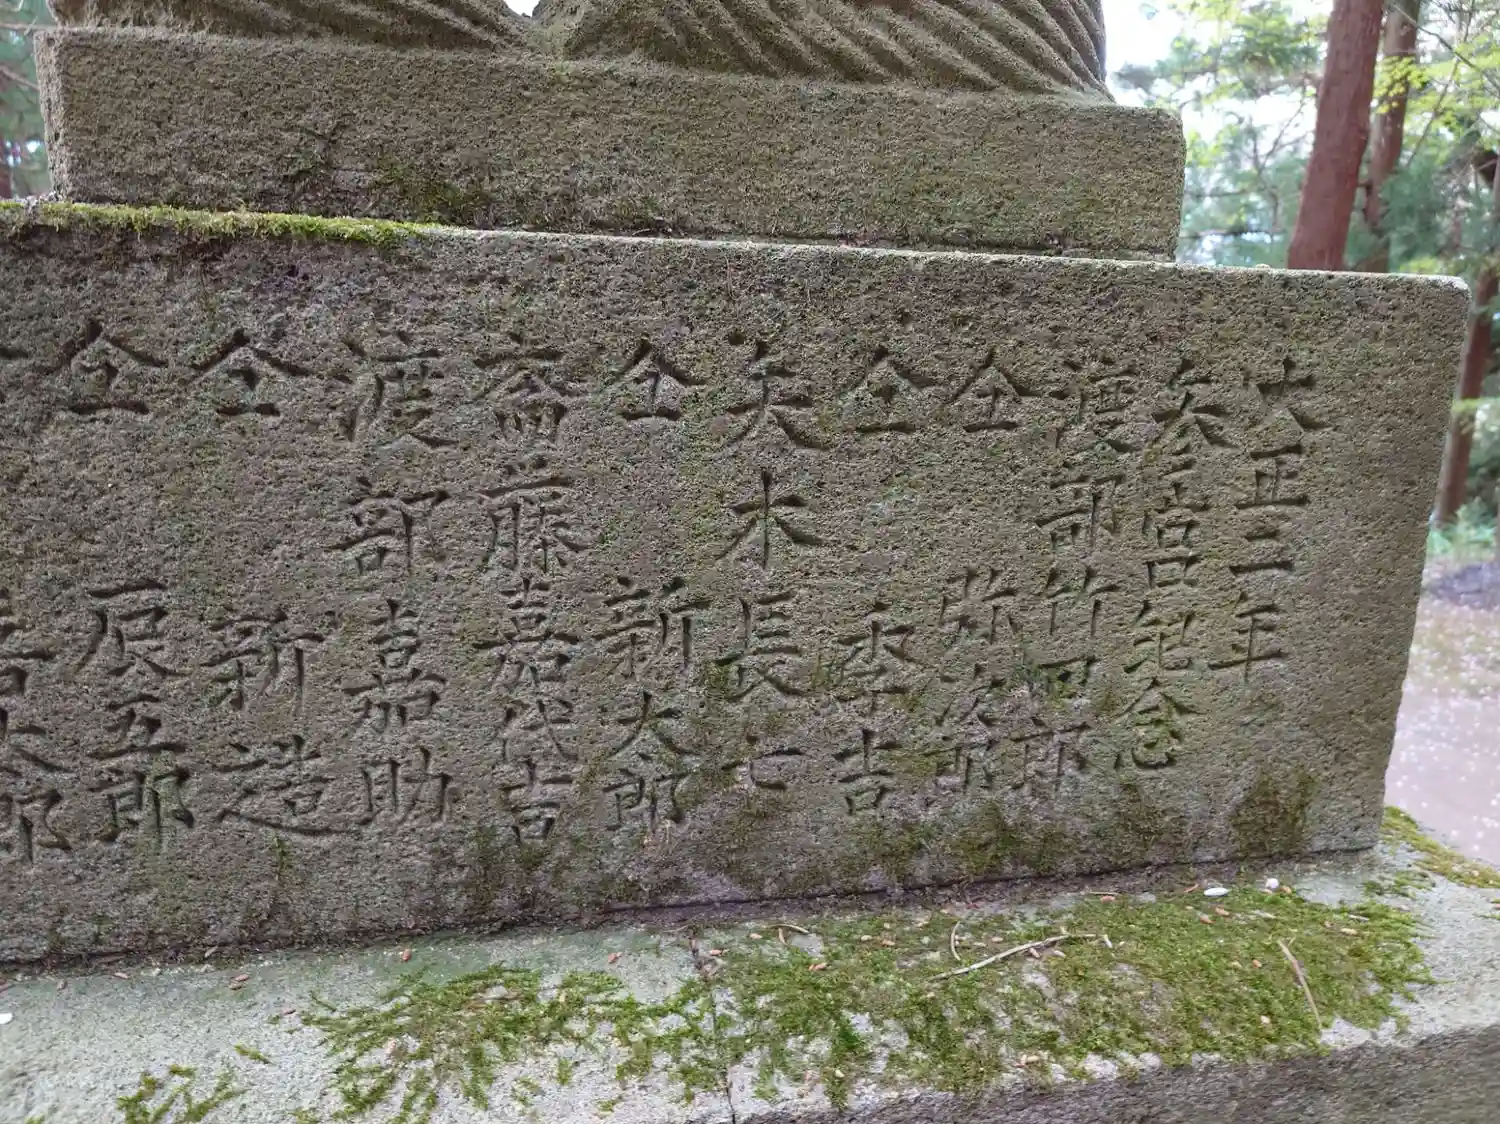 大正二年
参宮紀念
渡部竹四郎
仝 弥次郎
仝 李吉
矢木長七
仝 新太郎
齋藤嘉代吉
渡部嘉助
仝 新造
仝 辰五郎
太郎